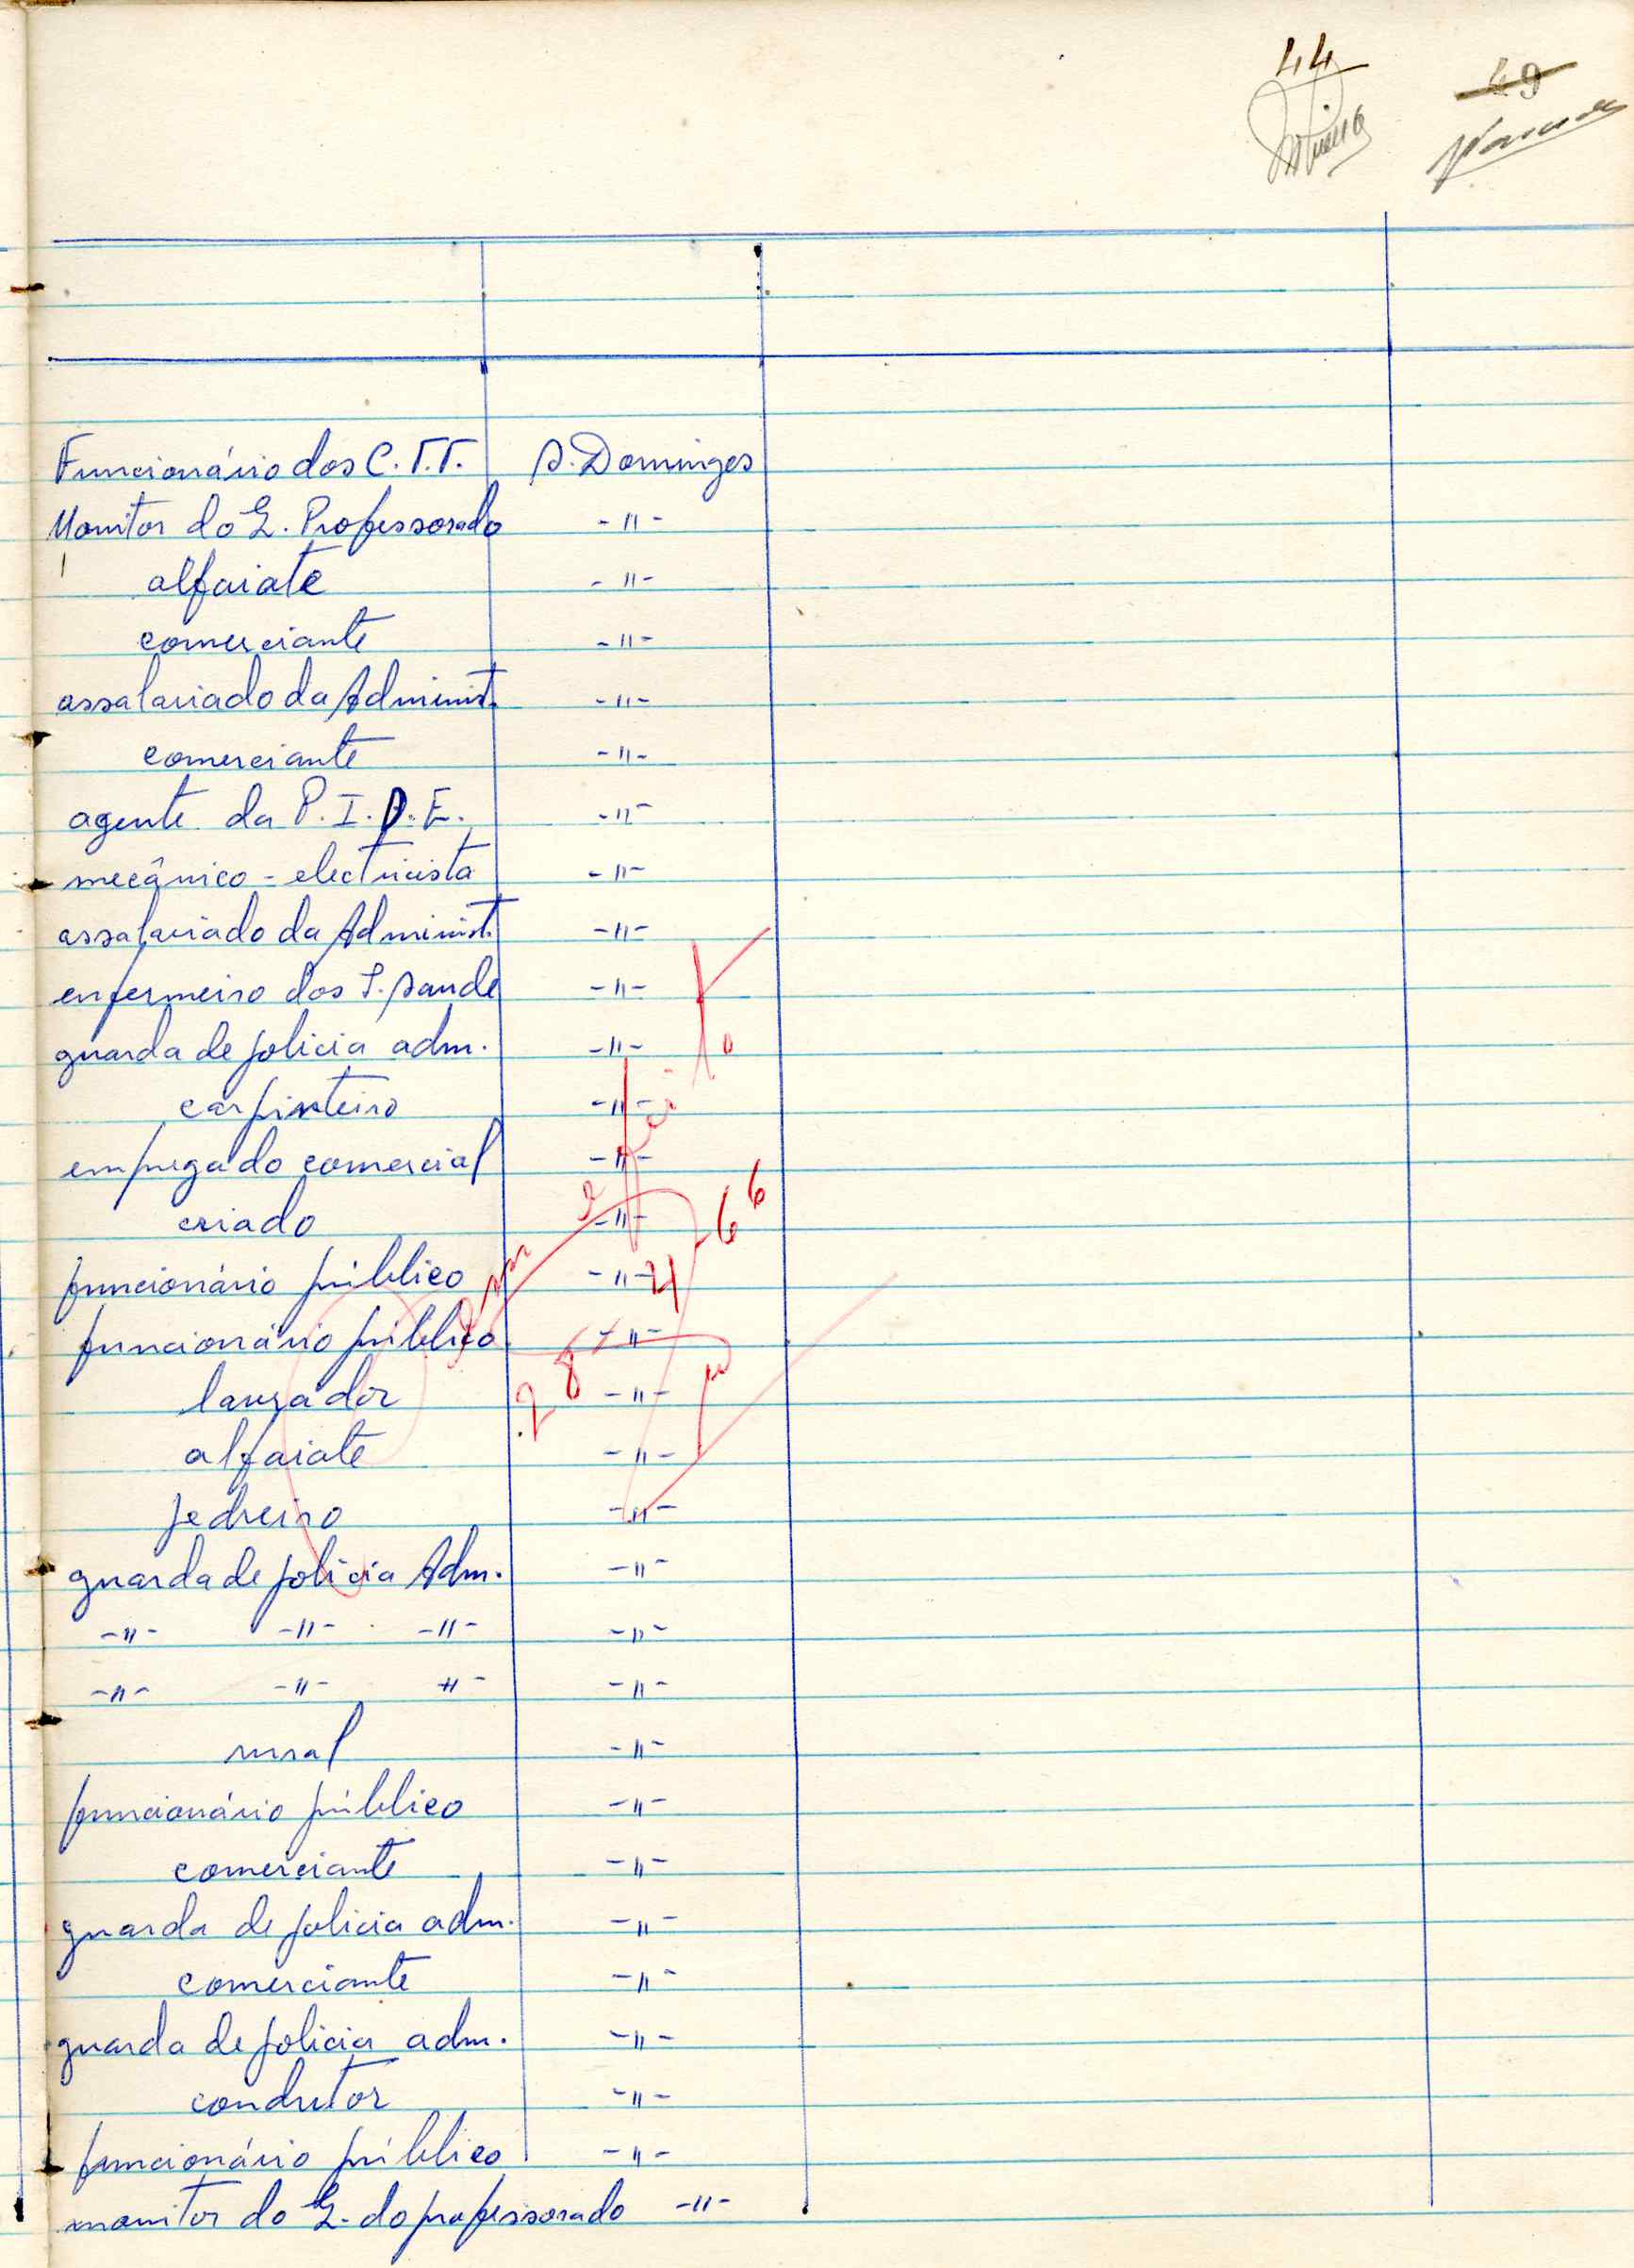 44
49
Funcionário dos C.T.T. S. Domingos
Monitor do Q. Professorado -"-
alfaiate -"-
comerciante -"-
assalariado da Administ. -"-
comerciante -"-
agente da P.I.D.E. -"-
mecânico-electricista -"-
assalariado da Administ. -"-
enfermeiro dos S. Saude -"-
guarda de policia adm. -"-
carpinteiro -"-
empregado comercial -"-
criado -"-
funcionário público -"-
funcionário público -"-
lavrador -"-
alfaiate -"-
pedreiro -"-
guarda de policia Adm. -"-
-"- -"- -"- -"-
-"- -"- -"- -"-
rural -"-
funcionário público -"-
comerciante -"-
guarda de policia adm. -"-
comerciante -"-
guarda de policia adm. -"-
condutor -"-
funcionário público -"-
monitor do Q. do professorado -"-
Sem efeito
28-4-66